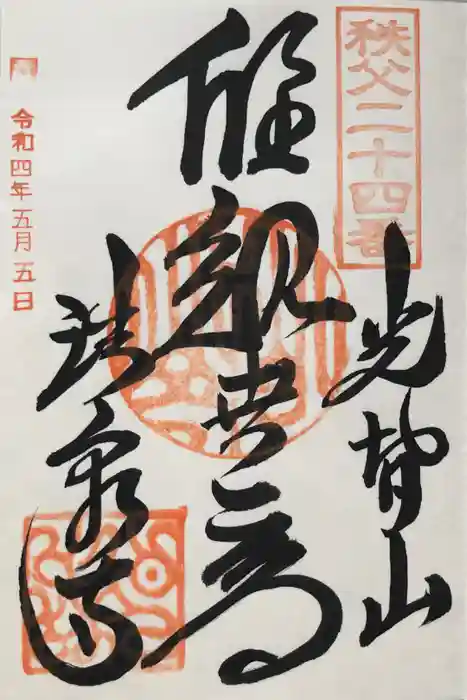 秩父二十四番
光智山
聖観世音
法泉寺
令和四年五月五日